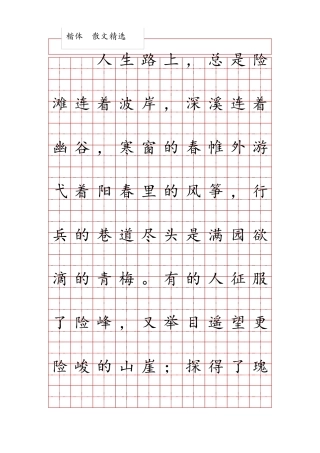 楷体 散文精选
人生路上，总是险
滩连着波岸，深溪连着
幽谷，寒窗的春帷外游
弋着阳春里的风筝，行
兵的巷道尽头是满园欲
滴的青梅。有的人征服
了险峰，又举目遥望更
险峻的山崖；探得了瑰